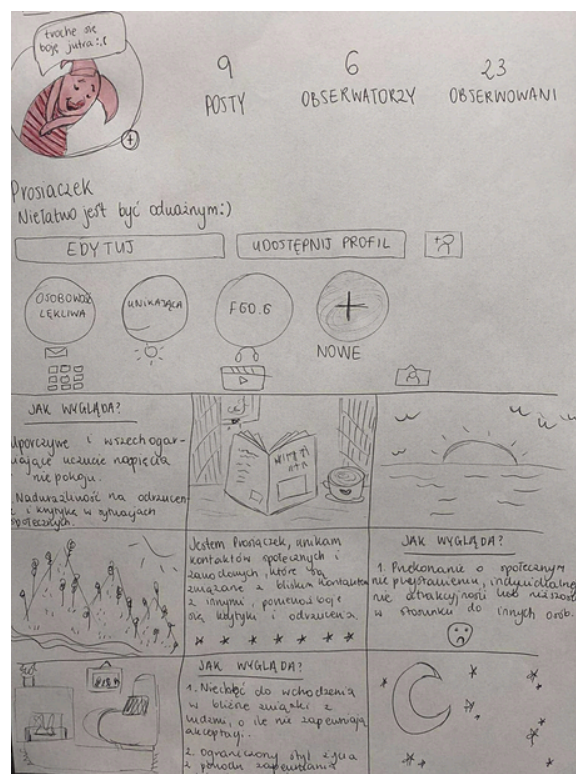 trochę się
boję jutra :,(
9
6
23
POSTY
OBSERWATORZY
OBSERWOWANI
Prosiaczek
Niełatwo jest być odważnym:)
EDYTUJ
UDOSTĘPNIJ PROFIL
OSOBOWOŚĆ
LĘKLIWA
UNIKAJĄCA
F60.6
NOWE
JAK WYGLĄDA?
Uporczywe i wszechogar-
niające uczucie napięcia
niepokoju.
Nadwrażliwość na odrzucen
i krytykę w sytuacjach
społecznych.
Jestem Prosiaczek, unikam
kontaktów społecznych i
zawodowych, które są
związane z bliskim kontaktem
z innymi, ponieważ boję
się krytyki i odrzucenia.
JAK WYGLĄDA?
1. Przekonanie o społecznym
nieprzystosowaniu, indywidualnej
nie atrakcyjności lub niższości
w stosunku do innych osób.
JAK WYGLĄDA?
1. Niechęć do wchodzenia
w bliższe związki z
ludźmi, o ile nie zapewniają
akceptacji.
2. Ograniczony styl życia
z powodu zapewniania